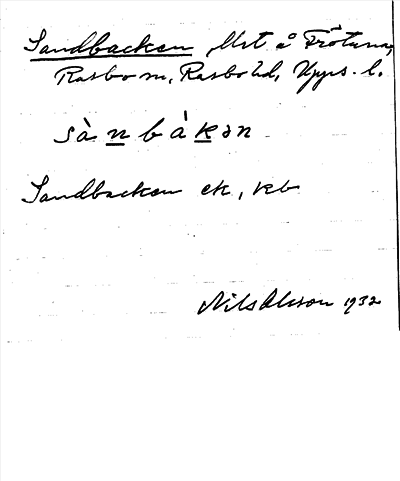 Sandbacken, Urt å Frötuna,
Rasbo sn, Rasbo hd, Upps. l.
sànbàkən
Sandbacken ek, kb
Nils Olsson 1932